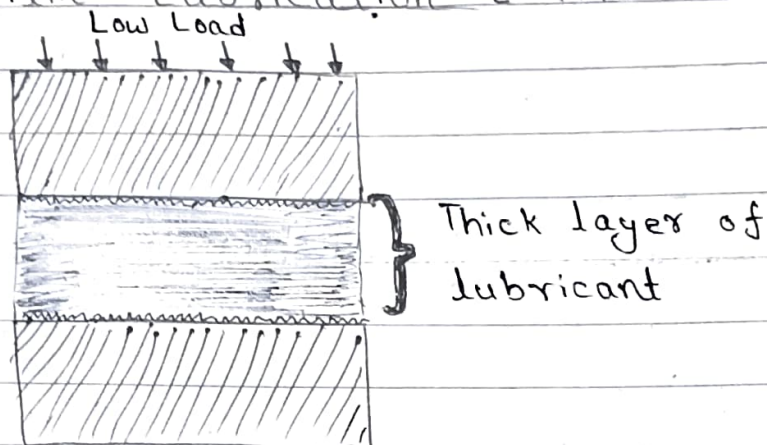 Low Load
Thick layer of
lubricant